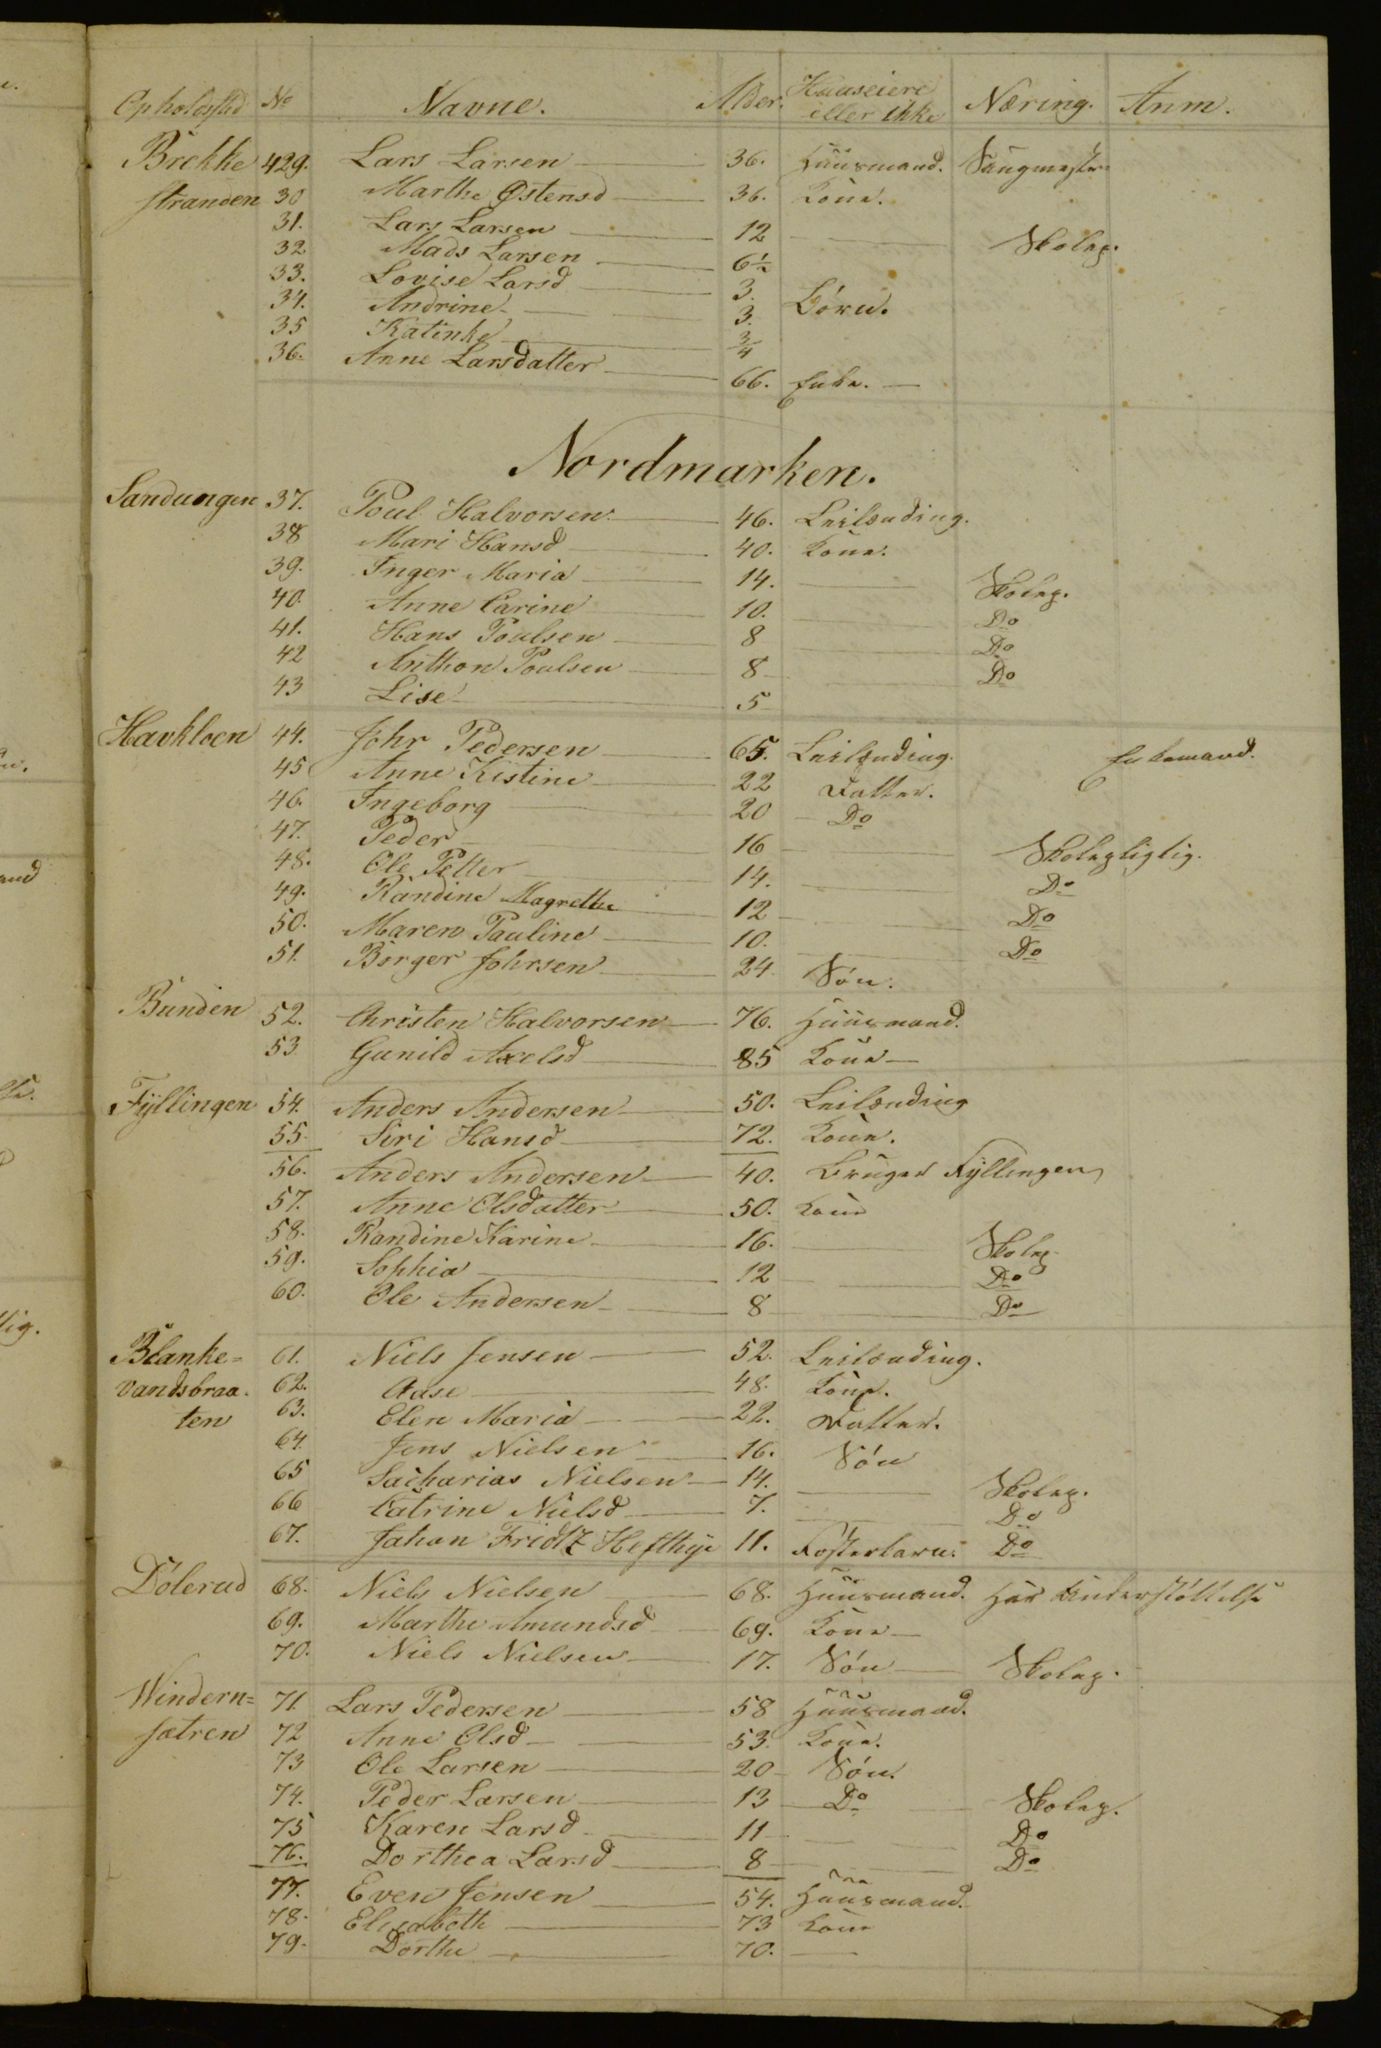 Opholdsted No Navne. Alder. Huuseiere eller ikke Næring. Anm.
Brekke 429. Lars Larsen 36. Huusmand. Saugmester
stranden 30 Marthe Østensd 36. Kone.
31. Lars Larsen 12 Skolep.
32 Mads Larsen 6½
33. Lovise Larsd 3.
34. Andrine 3. Börn.
35 Katinke ¾
36. Anne Larsdatter 66. Enke.
Nordmarken.
Sandungen 37. Poul Halvorsen 46. Leilænding.
38 Mari Hansd 40. Kone.
39. Inger Maria 14. Skolep.
40. Anne Carine 10. Do
41. Hans Poulsen 8 Do
42 Anthon Poulsen 8 Do
43 Lise 5
Havkloen 44. Johr Pedersen 65. Leilænding. Enkemand.
45 Anne Kistine 22 Datter.
46. Ingeborg 20 Do
47. Peder 16 Skolepligtig.
48. Ole Petter 14. Do
49. Randine Magrethe 12 Do
50. Maren Pauline 10. Do
51. Börger Johrsen 24 Sön.
Bunden 52. Christen Halvorsen 76. Huusmand.
53 Gunild Axelsd 85 Kone
Fyllingen 54. Anders Andersen 50. Leilænding
55. Siri Hansd 72. Kone.
56. Anders Andersen 40. Bruger Fyllingen
57. Anne Olsdatter 50. Kone
58. Randine Karine 16. Skolep.
59. Sophia 12 Do
60. Ole Andersen 8 Do
Blanke= 61. Niels Jensen 52. Leilænding.
vandsbraa- 62. Aase 48. Kone.
ten 63. Elen Maria 22. Datter.
64. Jens Nielsen 16. Sön
65 Sacharias Nielsen 14. Skolep.
66 Catrine Nielsd 7. Do
67. Johan Fridtz Hefthye 11. Fosterbarn. Do
Dölerud 68. Niels Nielsen 68. Huusmand. Har Understöttelse
69. Marthe Amundsd 69. Kone
70. Niels Nielsen 17. Sön Skolep.
Windern= 71. Lars Pedersen 58 Huusmand.
sætren 72 Anne Olsd 53. Kone.
73 Ole Larsen 20 Sön.
74. Peder Larsen 13 Do Skolep.
75 Karen Larsd 11 Do
76. Dorthea Larsd 8 Do
77. Even Jensen 54. Huusmand.
78. Elisabeth 73 Kone
79. Dorthe 70.